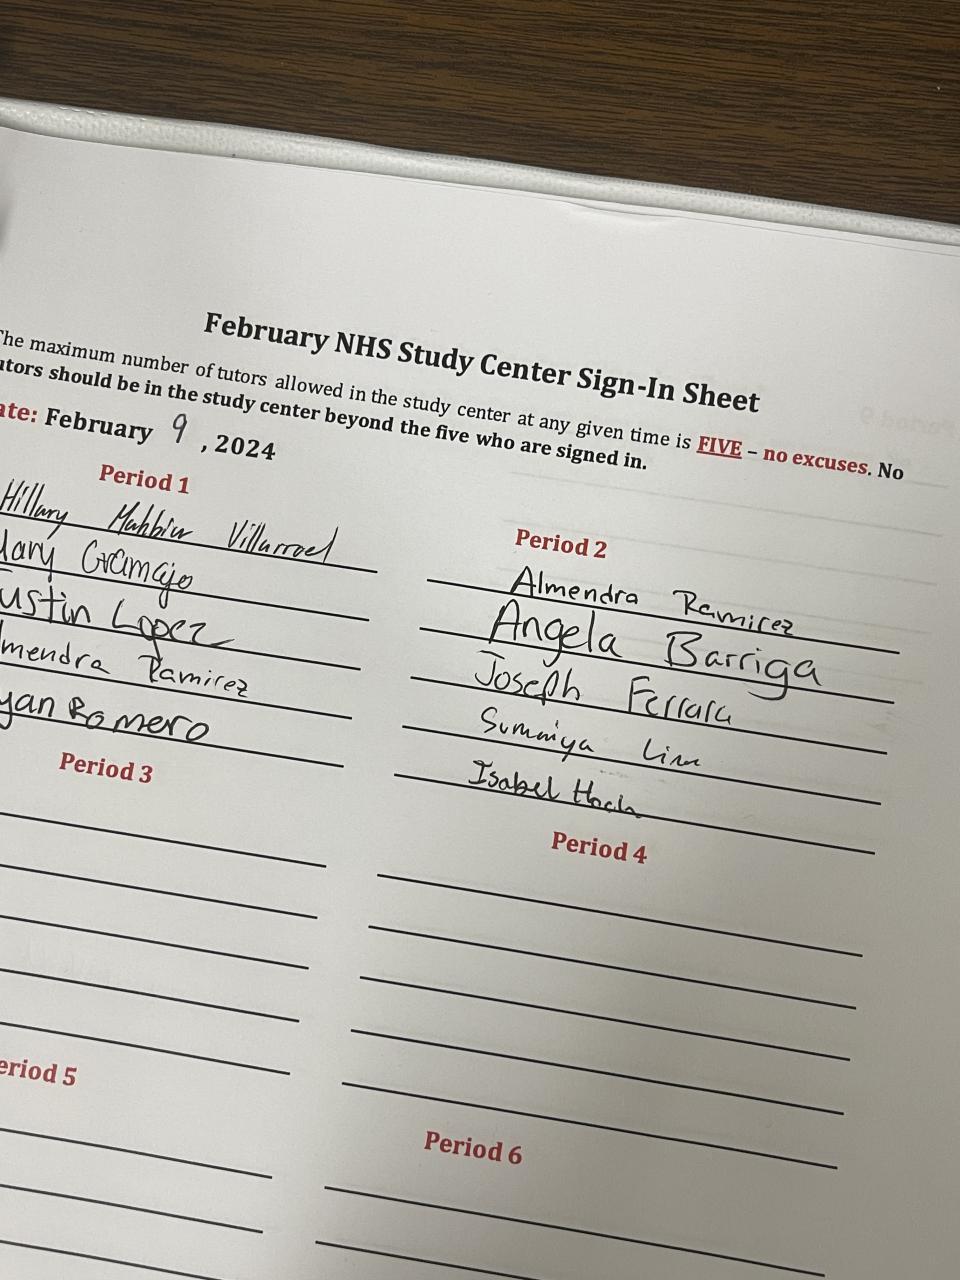 February NHS Study Center Sign-In Sheet
The maximum number of tutors allowed in the study center at any given time is FIVE – no excuses. No
utors should be in the study center beyond the five who are signed in.
ate: February 9, 2024
Period 1
Hillary Villarroel
lary Gramajo
ustin Lopez
lmendra Ramirez
yan Romero
Period 2
Almendra Ramirez
Angela Barriga
Joseph Ferrara
Summiya
Isabel
Period 3
Period 4
eriod 5
Period 6